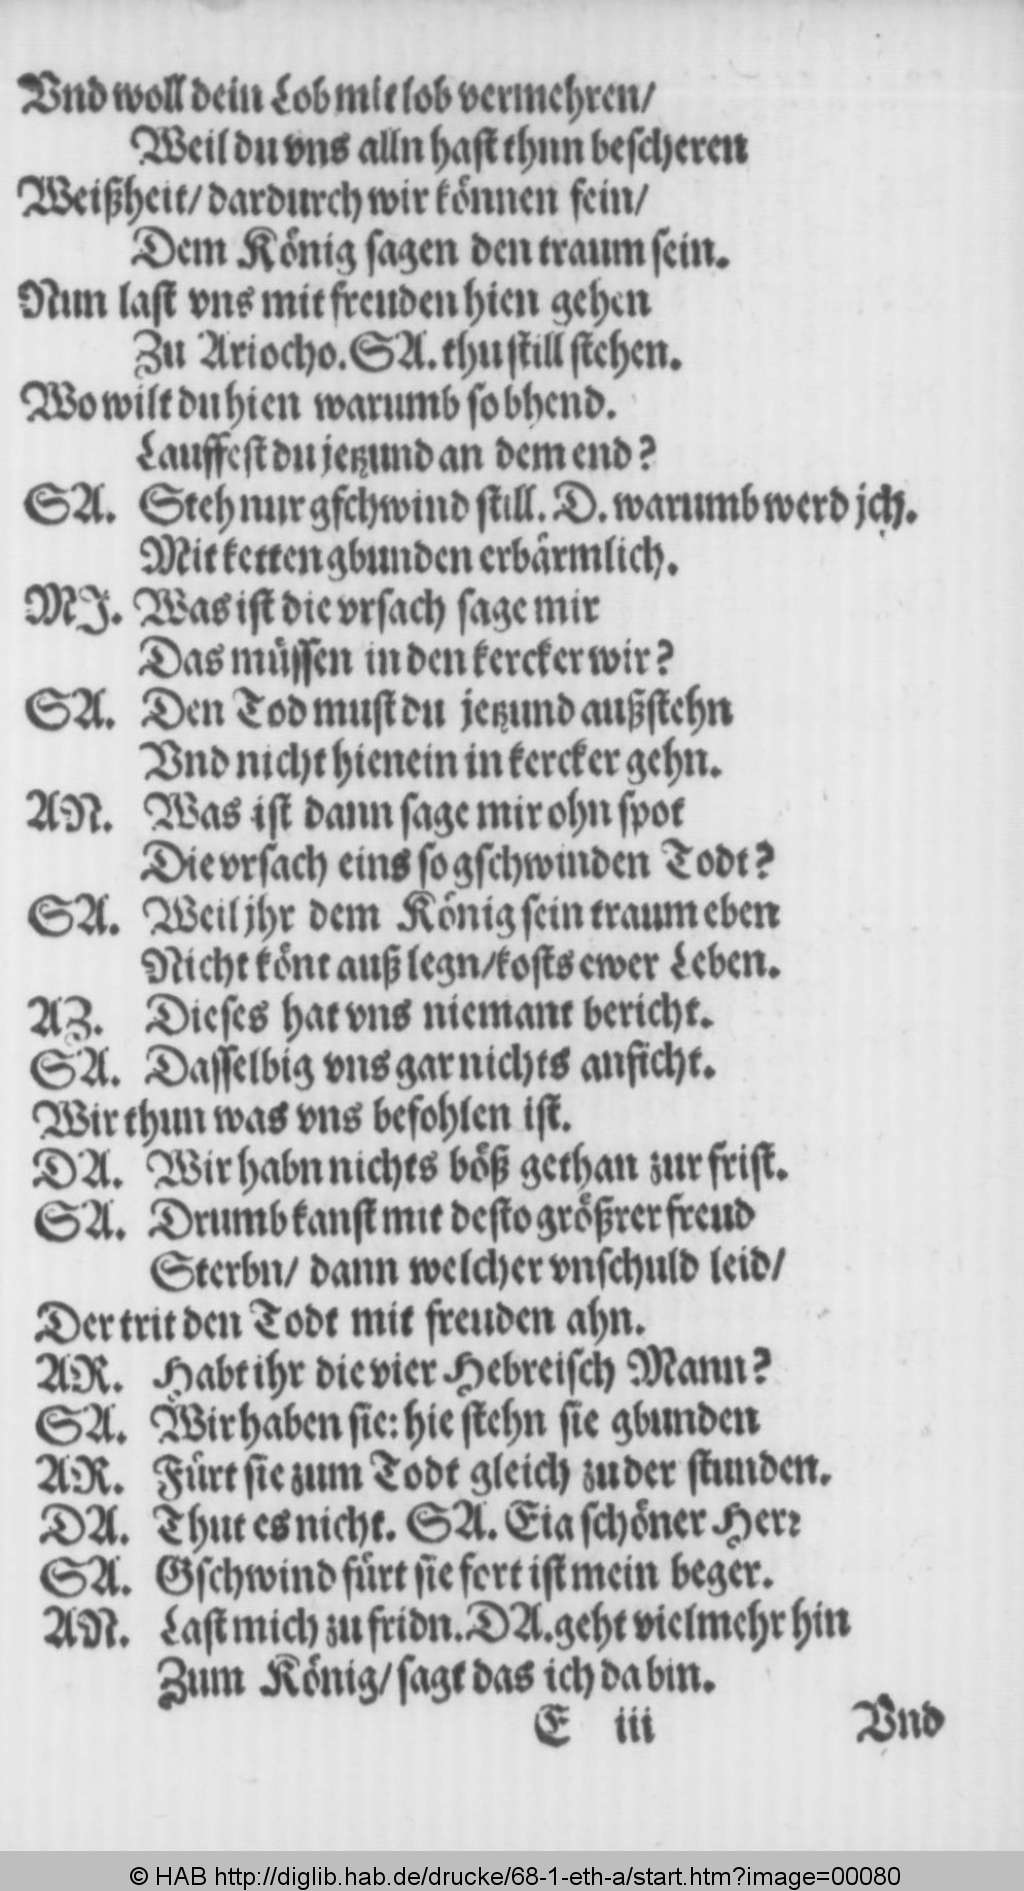 Vnd woll dein Lob mit lob vermehren/
Weil du vns alln hast thun bescheren
Weißheit/ dardurch wir können fein/
Dem König sagen den traum sein.
Nun last vns mit freuden hien gehen
Zu Ariocho. SA. thu still stehen.
Wo wilt du hien warumb so bhend.
Lauffest du jetzund an dem end?
SA. Steh nur gschwind still. D. warumb werd jch.
Mit ketten gbunden erbärmlich.
MJ. Was ist die vrsach sage mir
Das müssen in den kercker wir?
SA. Den Tod must du jetzund außstehn
Vnd nicht hienein in kercker gehn.
AN. Was ist dann sage mir ohn spot
Die vrsach eins so gschwinden Todt?
SA. Weil jhr dem König sein traum eben
Nicht könt auß legn/ kosts ewer Leben.
AZ. Dieses hat vns niemant bericht.
SA. Dasselbig vns gar nichts anficht.
Wir thun was vns befohlen ist.
DA. Wir habn nichts böß gethan zur frist.
SA. Drumb kanst mit desto größrer freud
Sterbn/ dann welcher vnschuld leid/
Der trit den Todt mit freuden ahn.
AR. Habt ihr die vier Hebreisch Mann?
SA. Wir haben sie: hie stehn sie gbunden
AR. Fürt sie zum Todt gleich zu der stunden.
DA. Thut es nicht. SA. Eia schöner Herr
SA. Gschwind fürt sie fort ist mein beger.
AN. Last mich zu fridn. DA. geht vielmehr hin
Zum König/ sagt das ich da bin.
E iii Vnd
© HAB http://diglib.hab.de/drucke/68-1-eth-a/start.htm?image=00080